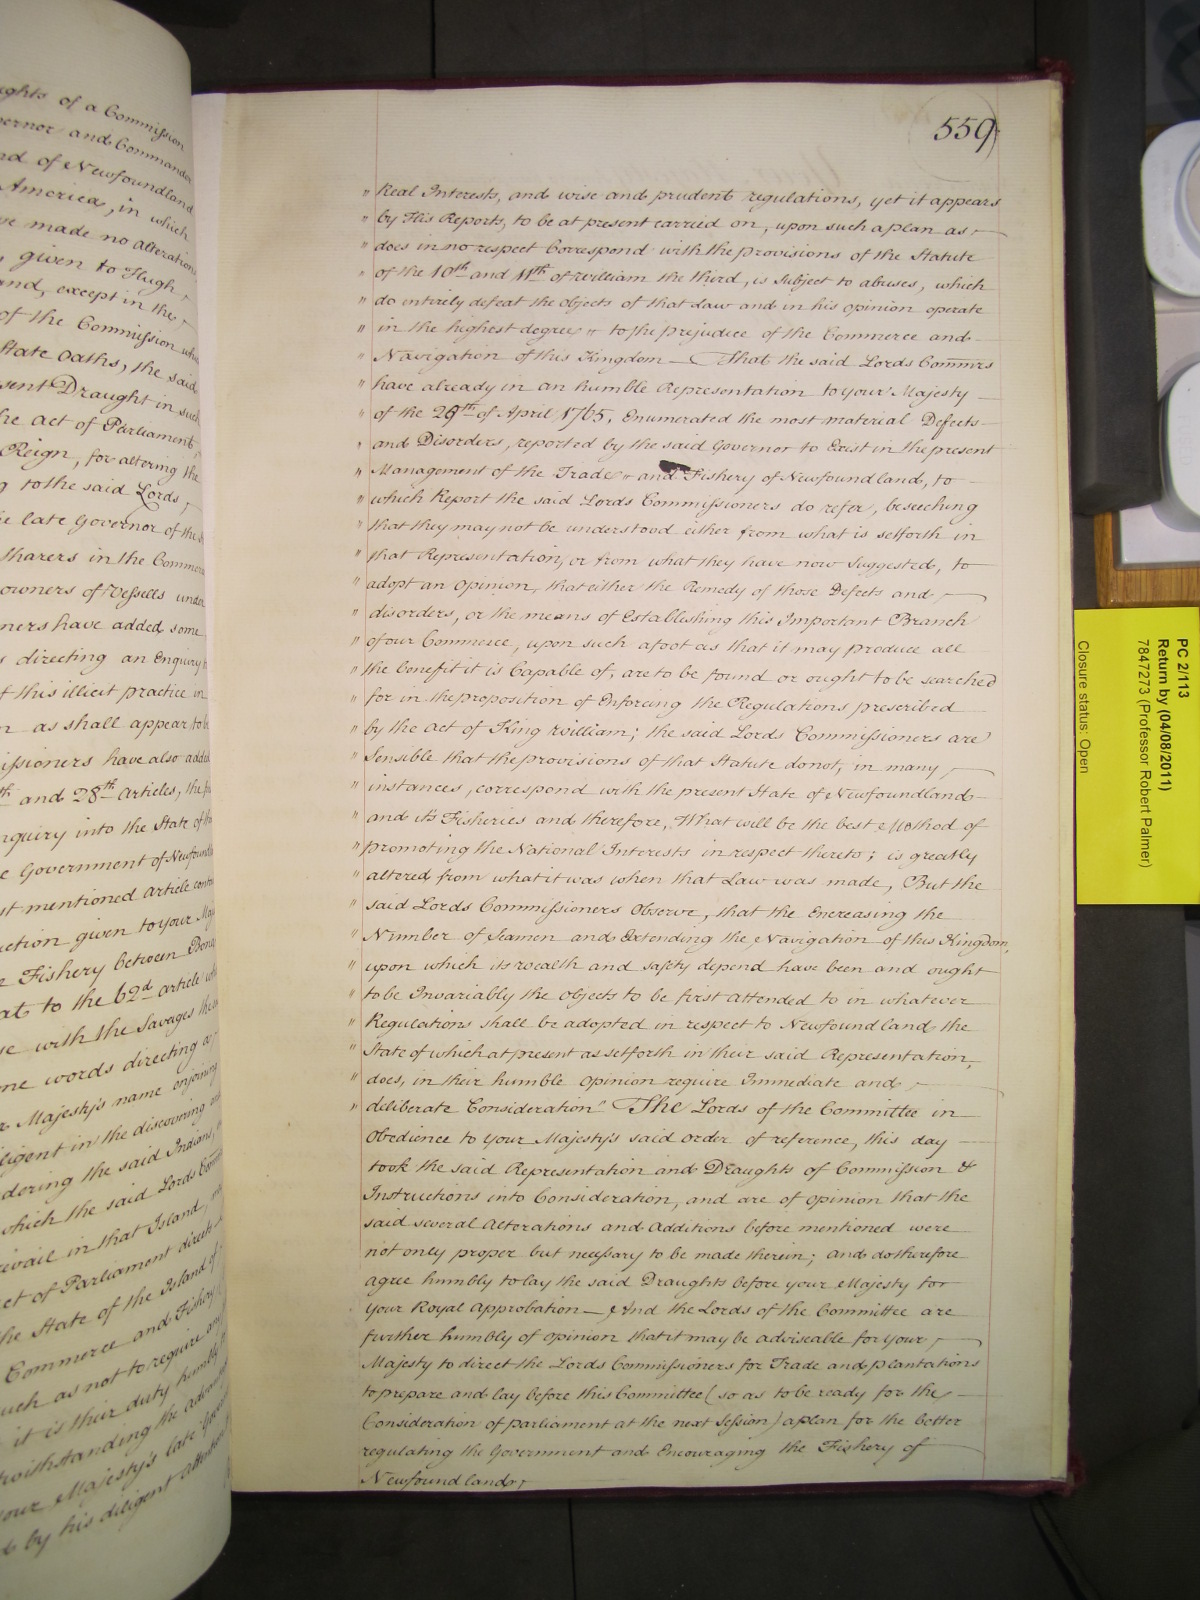 ghts of a Commission
ernor and Commander
nd of Newfoundland
America, in which
ve made no alterations
given to Hugh
and, except in the
of the Commission
State Oaths, the said
sent Draught in such
he Act of Parliament,
Reign, for altering the
g to the said Lords,
he late Governor of the
Sharers in the Commerce
owners of Vessells under
ners have added some
s directing an Enquiry
f this illicit practice in
n as shall appear to be
issioners have also added
th and 28th Articles, the
nquiry into the State of the
e Government of Newfoundl
st mentioned Article
uction given to your Maj
e Fishery between Bona
at to the 62d article
se with the Savages
me words directing
r Majesty's name enjoining
ligent in the discovering
dering the said Indians,
which the said Lords Comm
revail in that Island,
ct of Parliament directs
the State of the Island of
Commerce and Fishery
uch as not to require any
it is their duty humbly
twithstanding the
your Majesty's late
by his diligent Attention
559
" Real Interests, and wise and prudent regulations, yet it appears
" by His Reports, to be at present carried on, upon such a plan as
" does in no respect Correspond with the provisions of the Statute
" of the 10th and 11th of William the third, is Subject to abuses, which
" do entirely defeat the Objects of that Law and in his opinion operate
" in the highest degree " to the prejudice of the Commerce and
" Navigation of this Kingdom — That the said Lords Commrs
" have already in an humble Representation to your Majesty
" of the 29th of April 1765, Enumerated the most material Defects
" and Disorders, reported by the said Governor to Exist in the present
" Management of the Trade " and Fishery of Newfoundland, to
" which Report the said Lords Commissioners do refer, beseeching
" that they may not be understood either from what is setforth in
" that Representation, or from what they have now Suggested, to
" adopt an Opinion, that either the Remedy of those Defects and
" disorders, or the means of Establishing this Important Branch
" of our Commerce, upon such a foot as that it may produce all
" the benefit it is Capable of, are to be found or ought to be searched
" for in the proposition of Enforcing the Regulations prescribed
" by the Act of King William; the said Lords Commissioners are
" Sensible that the provisions of that Statute do not, in many
" instances, correspond with the present State of Newfoundland
" and its Fisheries and therefore, What will be the best Method of
" promoting the National Interests in respect thereto; is greatly
" altered from what it was when that Law was made, But the
" said Lords Commissioners Observe, that the Encreasing the
" Number of Seamen and Extending the Navigation of this Kingdom,
" upon which its Wealth and safety depend have been and ought
" to be Invariably the Objects to be first attended to in whatever
" Regulations shall be adopted in respect to Newfoundland the
" State of which at present as setforth in their said Representation,
" does, in their humble Opinion require Immediate and
" deliberate Consideration" The Lords of the Committee in
Obedience to your Majesty's said Order of reference, this day
took the said Representation and Draughts of Commission &
Instructions into Consideration, and are of Opinion that the
said several Alterations and Additions before mentioned were
not only proper but necessary to be made therein; and do therefore
agree humbly to lay the said Draughts before your Majesty for
your Royal Approbation — And the Lords of the Committee are
further humbly of opinion that it may be adviseable for your
Majesty to direct the Lords Commissioners for Trade and plantations
to prepare and lay before this Committee (so as to be ready for the
Consideration of parliament at the next Session) a plan for the better
regulating the Government and Encouraging the Fishery of
Newfoundland,
PC 2/113
Return by (04/08/2011)
7847273 (Professor Robert Palmer)
Closure status: Open